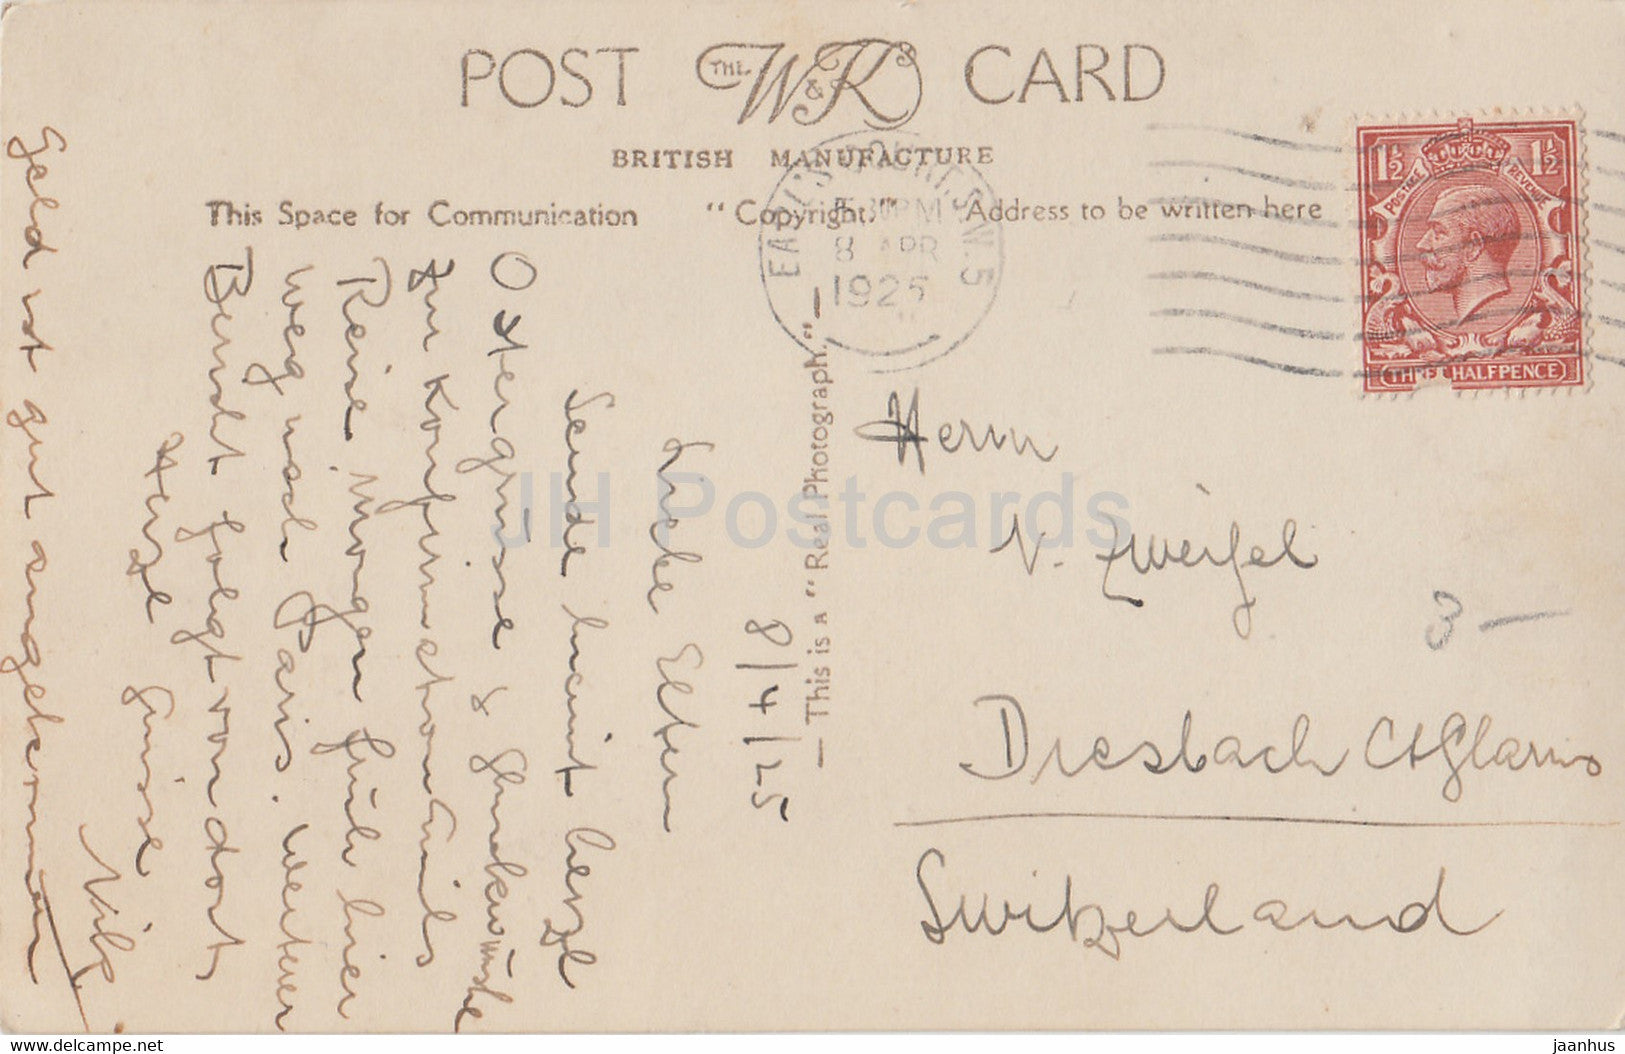 POST THE W & K'S CARD
BRITISH MANUFACTURE
This Space for Communication "Copyright." Address to be written here
EARL'S COURT. S.W.5
PM
8 APR
1925
POSTAGE REVENUE
1½ 1½
THREE HALFPENCE
— This is a "Real Photograph." —
8/4/25
Liebe Eltern
Sende hiemit herzl
Ostergrüsse & Glückwünsche
zur Konfirmation Emils
Reise morgen früh hier
weg nach Paris. Weiterer
Bericht folgt von dort
Herzl Grüsse
Geld ist gut angekommen
Herrn
N. Zweifel
Diesbach Ct Glarus
Switzerland
3 —
JH Postcards
delcampe.net
jaanhus